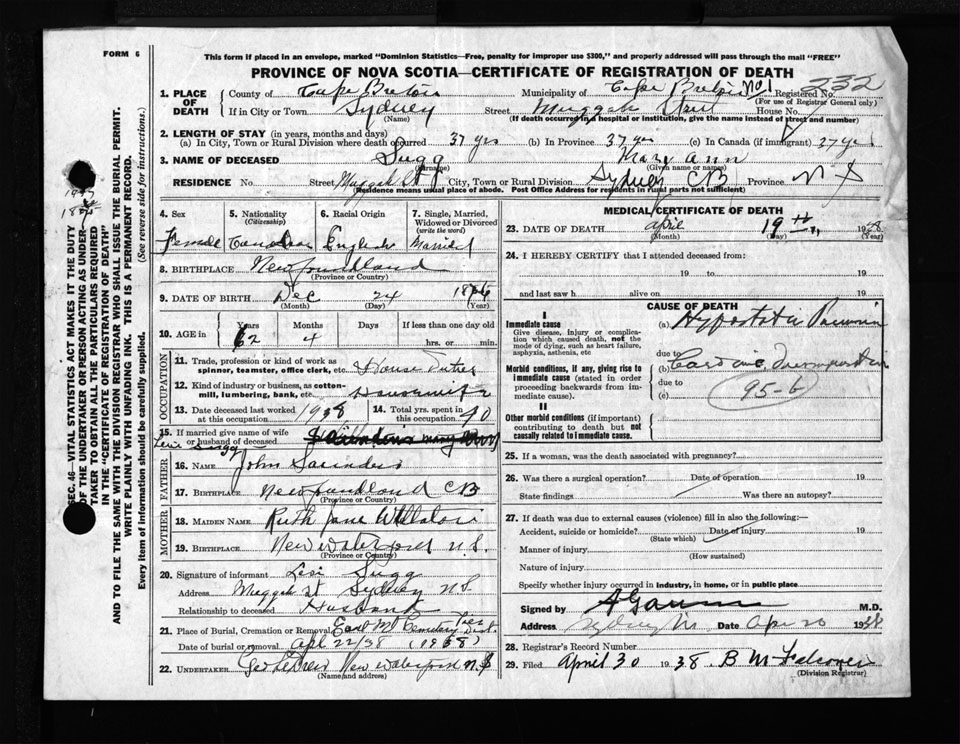 FORM 6
This form if placed in an envelope, marked "Dominion Statistics—Free, penalty for improper use $300," and properly addressed will pass through the mail "FREE"
PROVINCE OF NOVA SCOTIA—CERTIFICATE OF REGISTRATION OF DEATH
232
1. PLACE OF DEATH County of Cape Breton Municipality of Cape Breton No 1 Registered No.
(For use of Registrar General only)
If in City or Town Sydney Street Muggah Street House No.
(Name) (If death occurred in a hospital or institution, give the name instead of street and number)
2. LENGTH OF STAY (in years, months and days)
(a) In City, Town or Rural Division where death occurred 37 yrs (b) In Province 37 yrs (c) In Canada (if immigrant) 37 yrs
3. NAME OF DECEASED Sugg Mary Ann
(Surname) (Given name or names)
RESIDENCE No. Street Muggah St City, Town or Rural Division Sydney CB Province N S
(Residence means usual place of abode. Post Office Address for residents in rural parts not sufficient)
4. Sex 5. Nationality (Citizenship) 6. Racial Origin 7. Single, Married, Widowed or Divorced (write the word)
Female Canadian English Married
8. BIRTHPLACE Newfoundland
(Province or Country)
9. DATE OF BIRTH Dec 24
(Month) (Day) (Year)
10. AGE in Years Months Days If less than one day
62 4 hrs. or min.
OCCUPATION
11. Trade, profession or kind of work as spinner, teamster, office clerk, etc. House
12. Kind of industry or business, as cotton-mill, lumbering, bank, etc.
13. Date deceased last worked at this occupation 1938 14. Total yrs. spent in this occupation 40
15. If married give name of wife or husband of deceased
Sugg
FATHER
16. NAME John Saunders
17. BIRTHPLACE Newfoundland CB
(Province or Country)
MOTHER
18. MAIDEN NAME Ruth Jane
19. BIRTHPLACE New Waterford N.S.
(Province or Country)
20. Signature of informant Sugg
Address Muggah St Sydney N.S.
Relationship to deceased Husband
21. Place of Burial, Cremation or Removal East Mt Cemetery
Date of burial or removal Apl 22/38 (1938)
22. UNDERTAKER New Waterford N.S
(Name and address)
MEDICAL CERTIFICATE OF DEATH
23. DATE OF DEATH April 19th, 1938
(Month) (Day) (Year)
24. I HEREBY CERTIFY that I attended deceased from:
19 to 19
and last saw h alive on 19
CAUSE OF DEATH
I
Immediate cause
Give disease, injury or complication which caused death, not the mode of dying, such as heart failure, asphyxia, asthenia, etc
(a) Hypostatic Pneumonia
due to
Morbid conditions, if any, giving rise to immediate cause (stated in order proceeding backwards from immediate cause).
(b) Cardiac
due to
(c) 95-b
II
Other morbid conditions (if important) contributing to death but not causally related to immediate cause.
25. If a woman, was the death associated with pregnancy?
26. Was there a surgical operation? Date of operation 19
State findings Was there an autopsy?
27. If death was due to external causes (violence) fill in also the following:—
Accident, suicide or homicide? Date of injury 19
(State which)
Manner of injury
(How sustained)
Nature of injury
Specify whether injury occurred in industry, in home, or in public place
Signed by M.D.
Address Sydney Date Apr 20 1938
28. Registrar's Record Number
29. Filed April 30 1938.
(Division Registrar)
SEC. 46—VITAL STATISTICS ACT MAKES IT THE DUTY
OF THE UNDERTAKER OR PERSON ACTING AS UNDER-
TAKER TO OBTAIN ALL THE PARTICULARS REQUIRED
IN THE "CERTIFICATE OF REGISTRATION OF DEATH"
AND TO FILE THE SAME WITH THE DIVISION REGISTRAR WHO SHALL ISSUE THE BURIAL PERMIT.
WRITE PLAINLY WITH UNFADING INK. THIS IS A PERMANENT RECORD.
Every item of information should be carefully supplied. (See reverse side for instructions.)